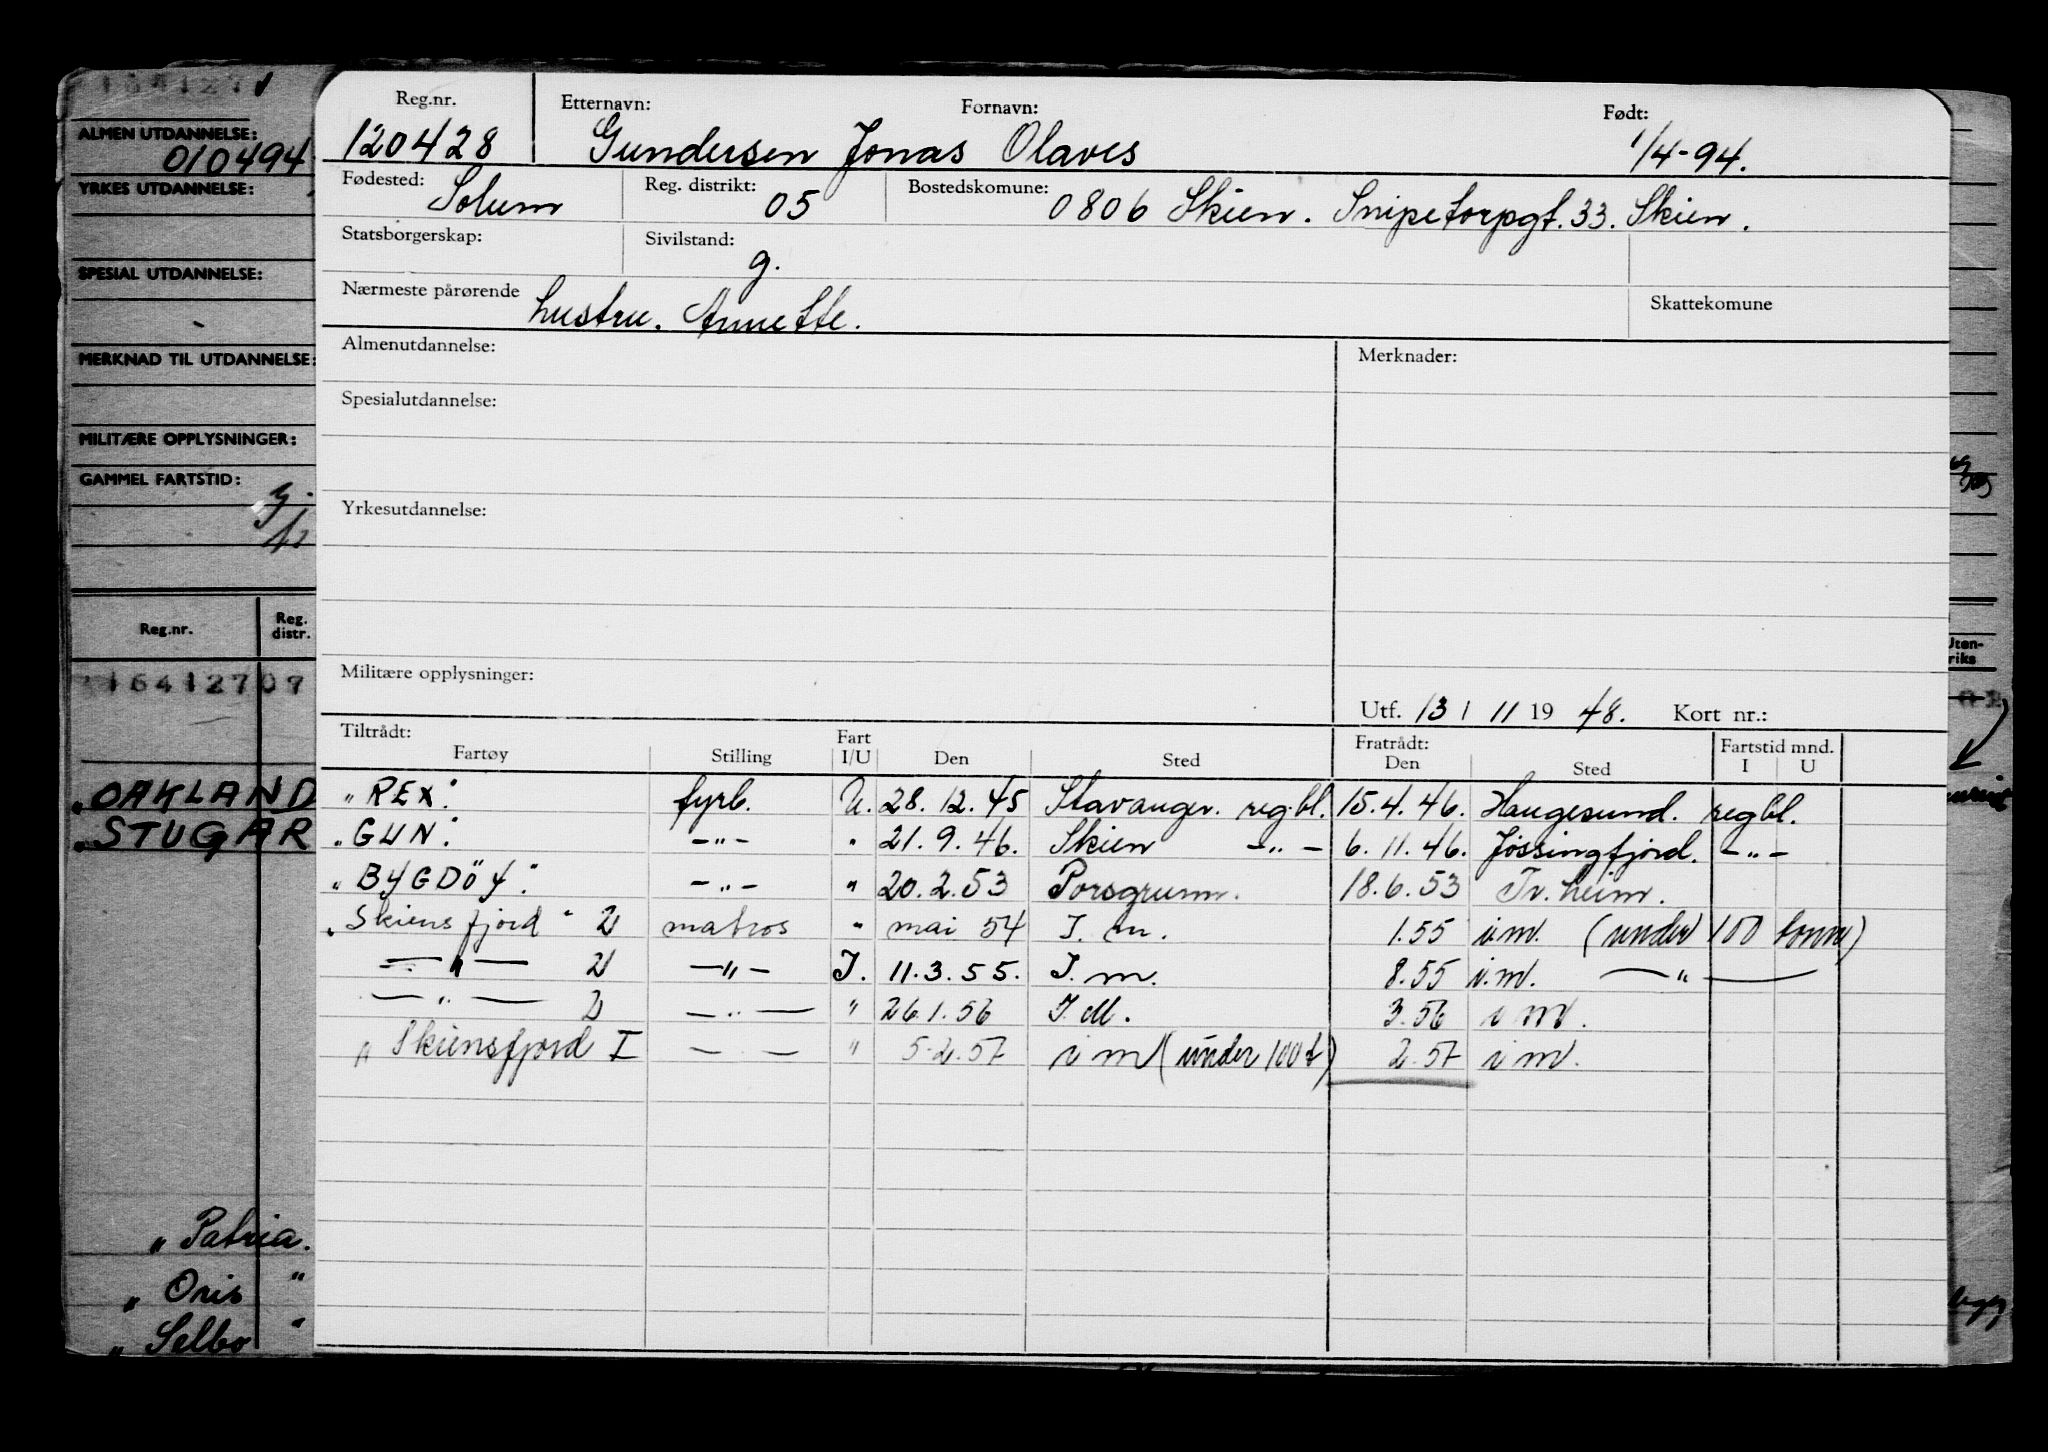 Reg.nr. Etternavn: Fornavn: Født:
120428 Gundersen Jonas Olaves 1/4-94.
Fødested: Solum Reg. distrikt: 05 Bostedskomune: 0806 Skien. Snipetorpgt. 33. Skien.
Statsborgerskap: Sivilstand: g.
Nærmeste pårørende hustru. Annette. Skattekomune
Almenutdannelse: Merknader:
Spesialutdannelse:
Yrkesutdannelse:
Militære opplysninger:
Utf. 13 / 11 19 48. Kort nr.:
Tiltrådt: Fart Fratrådt: Fartstid mnd.
Fartøy Stilling I/U Den Sted Den Sted I U
"REX". fyrb. U. 28.12.45 Stavanger. reg.bl. 15.4.46. Haugesund. reg bl.
"GUN". -"- " 21.9.46. Skien -"- 6.11.46. Jøssingfjord. -"-
"BYGDÖY". -"- " 20.2.53 Porsgrunn. 18.6.53 Tr.heim.
"Skiensfjord" 2) matros " mai 54 I. m. 1.55 i.m. (under 100 tonn)
-"- 2) -"- I. 11.3.55. I. m. 8.55 i.m. -"-
-"- 2) -"- " 26.1.56 I.M. 3.56 i m.
" Skiensfjord I -"- " 5.2.57 i m (under 100 t) 2.57 i m.
ALMEN UTDANNELSE:
010494
YRKES UTDANNELSE:
SPESIAL UTDANNELSE:
MERKNAD TIL UTDANNELSE:
MILITÆRE OPPLYSNINGER:
GAMMEL FARTSTID:
Reg.nr. Reg. distr.
16412707
"OAKLAND
"STUGAR
"Patria.
"Oris "
"Selbo "
Uten-
riks